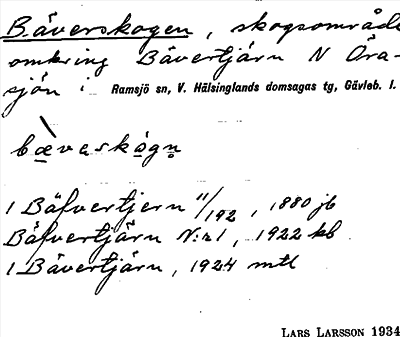 Bäverskogen, skogsområde
omkring Bävertjärn N Öra-
sjön i Ramsjö sn, V. Hälsinglands domsagas tg, Gävleb. l.
bæveskógn̥
1 Bäfvertjern 11/192, 1880 jb
Bäfvertjärn N:r 1, 1922 kb
1 Bävertjärn, 1924 mtl
LARS LARSSON 1934